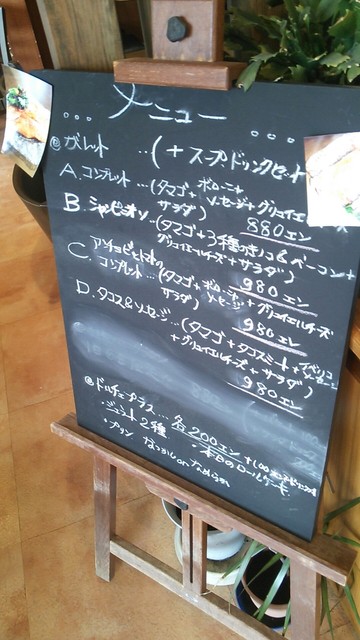 メニュー
◎ガレット …(+スープ・ドリンクセット
A. コンプレット …(タマゴ+ボローニャ
ソーセージ+グリュイエール
サラダ) 880エン
B. シャンピニオン …(タマゴ+3種のきのこ&ベーコン+
グリュイエルチーズ+サラダ)
980エン
C. アンチョビとトマトの
コンプレット …(タマゴ+ボローニャ
ソーセージ+グリュイエルチーズ
サラダ) 980エン
D. タコス&ソーセージ …(タマゴ+タコスミート+イベリコ
ソーセージ
+グリュイエルチーズ+サラダ)
980エン
◎ドルチェプラス … 各200エン
・ジェラート2種 ・本日のロールケーキ
・プリン なつかしorなめらか